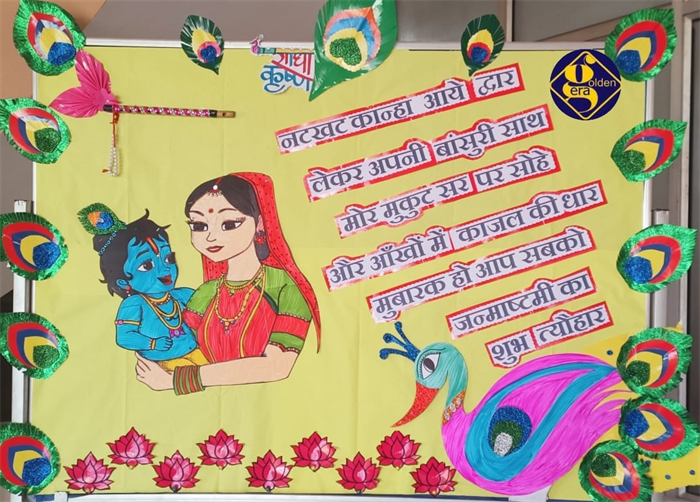 राधा
कृष्ण
golden
era
नटखट कान्हा आये द्वार
लेकर अपनी बांसुरी साथ
मोर मुकुट सर पर सोहे
और आँखों में काजल की धार
मुबारक हो आप सबको
जन्माष्टमी का
शुभ त्यौहार